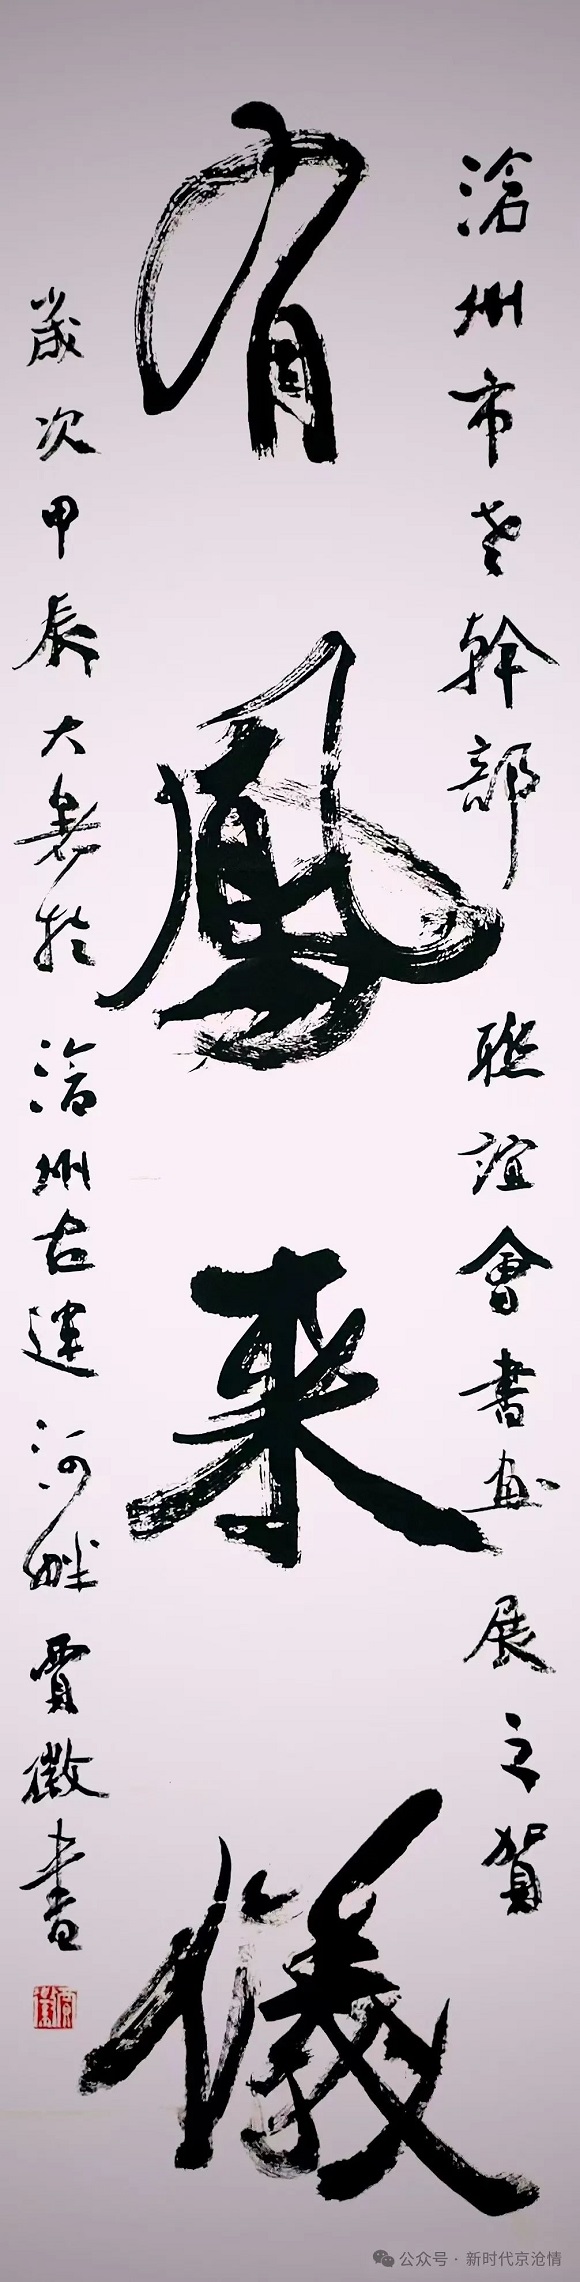 滄州市老幹部聯誼會書畫展之賀
有鳳來儀
歲次甲辰大暑於滄州古運河畔賈微書
公众号·新时代京沧情